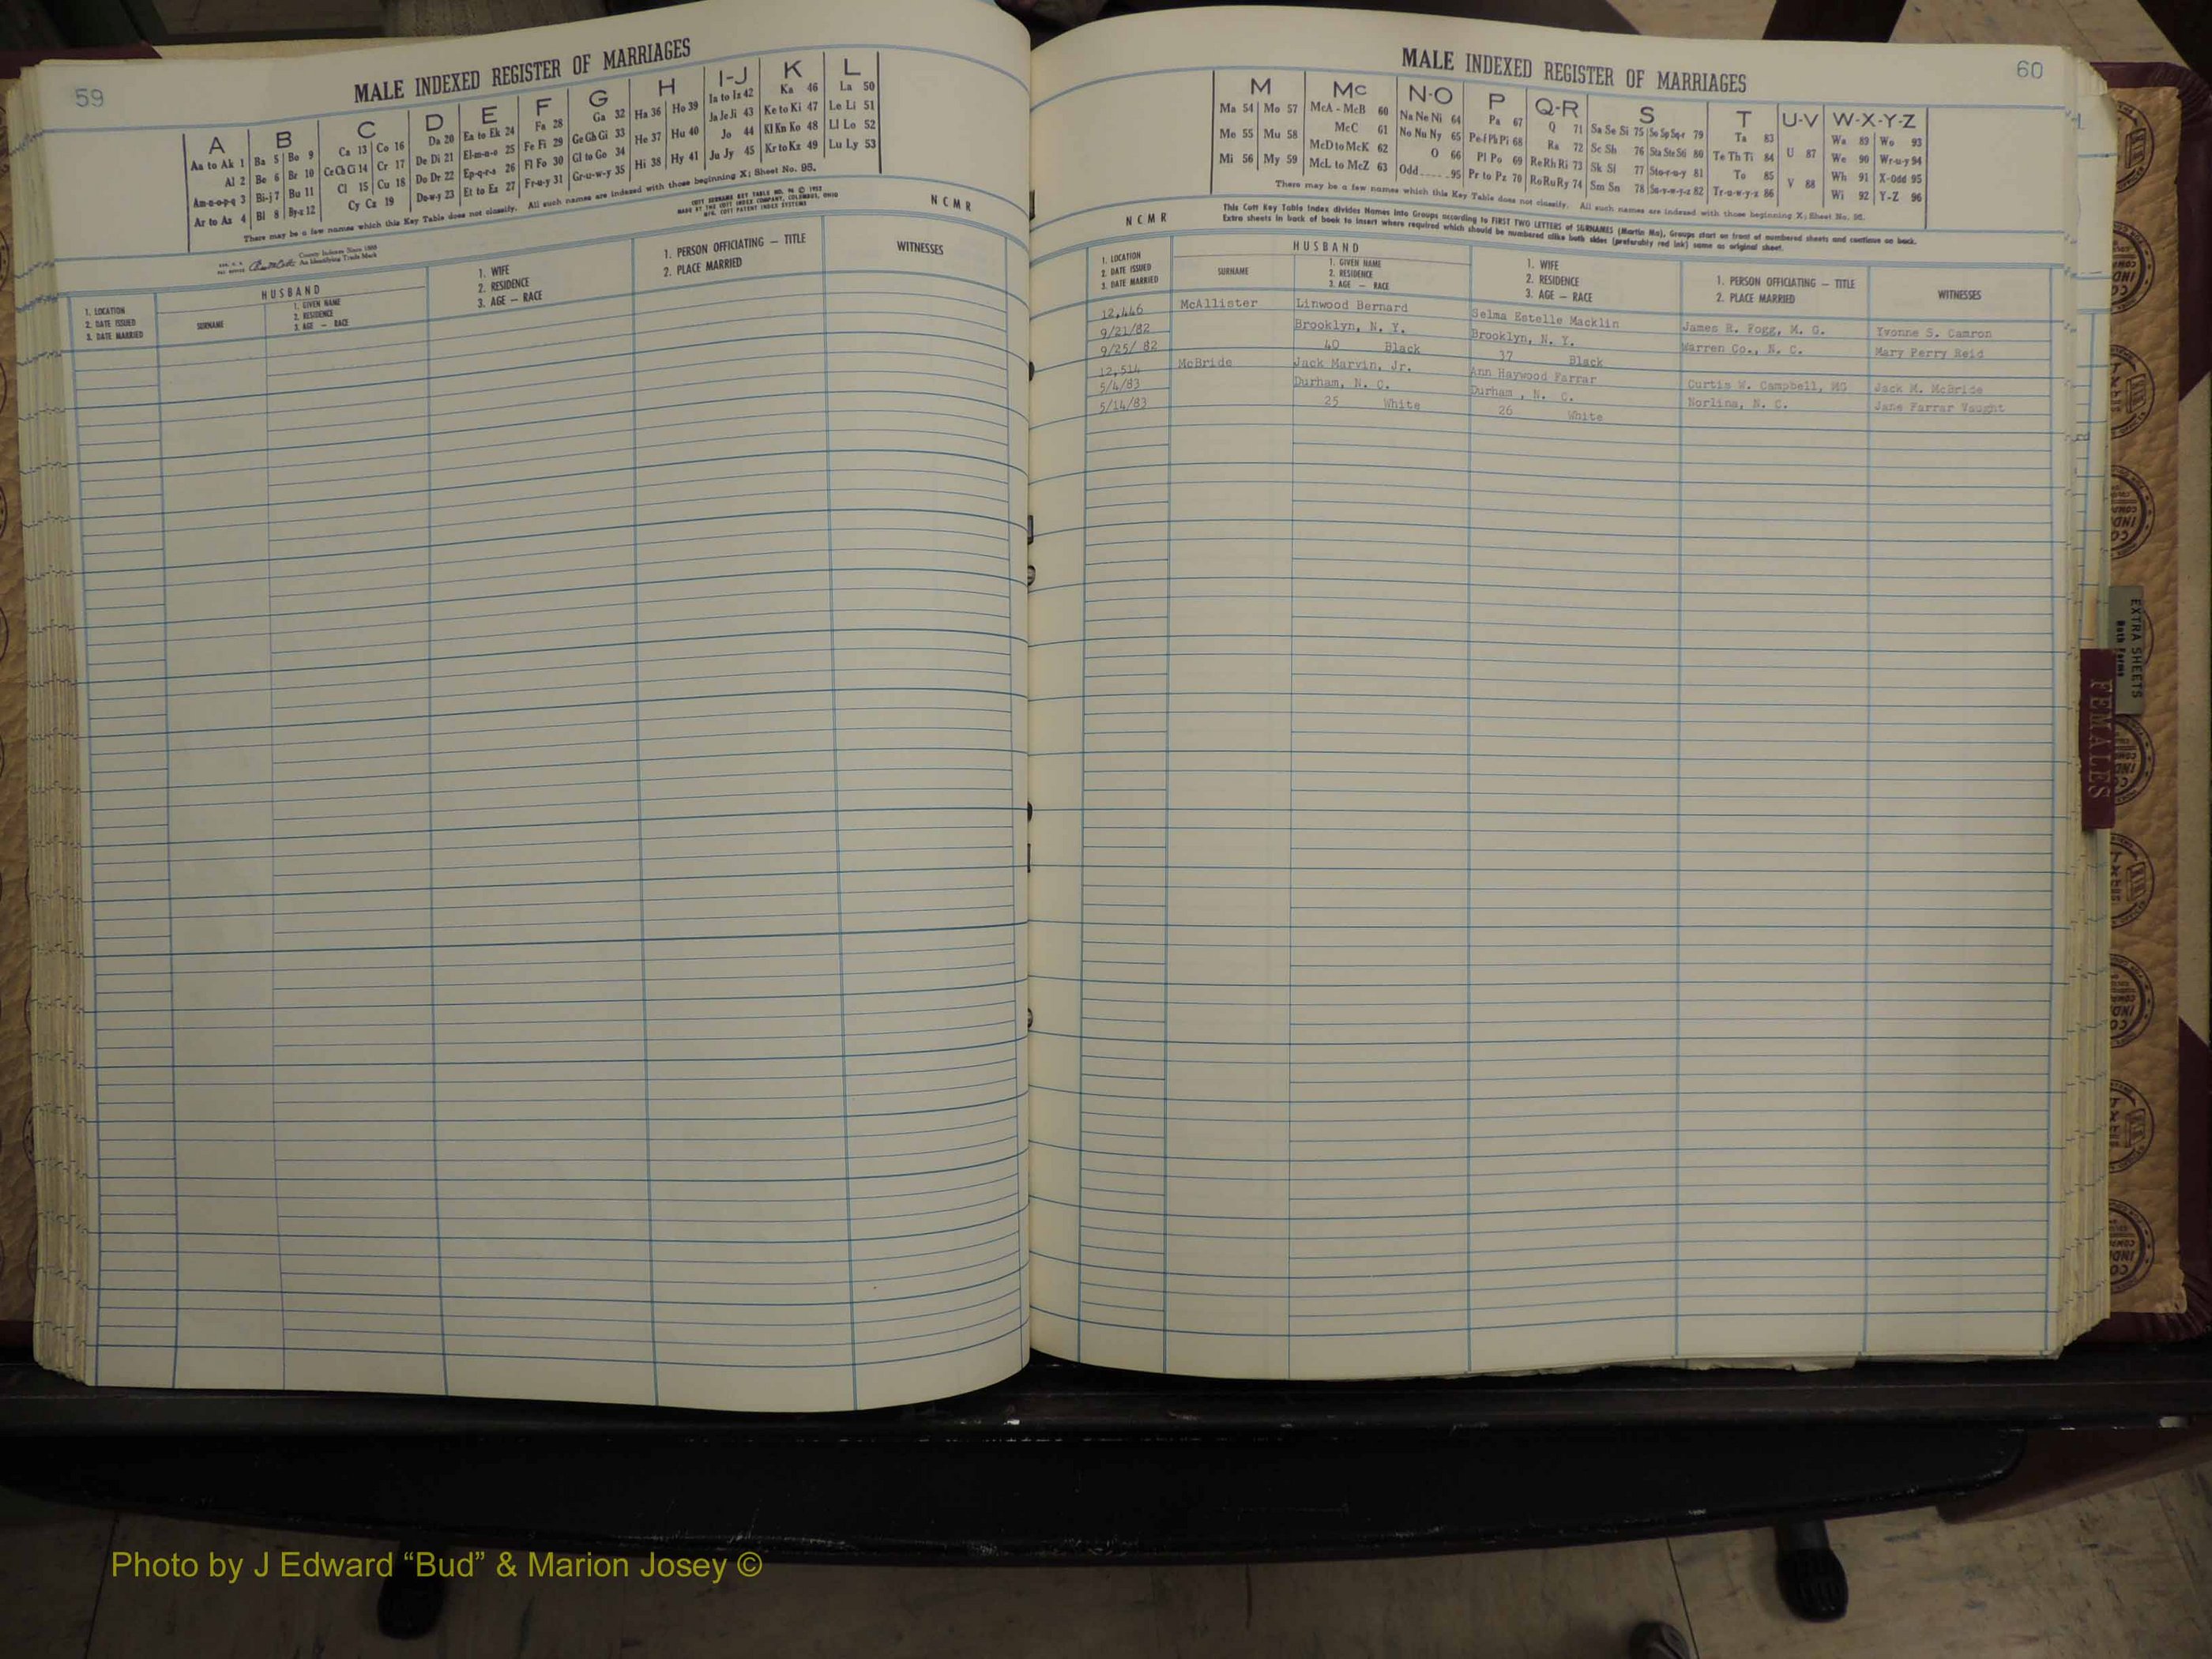 59
MALE INDEXED REGISTER OF MARRIAGES
A B C D E F G H I-J K L
Aa to Ak 1 Ba 5 Bo 9 Ca 13 Co 16 Da 20 Ea to Ek 24 Fa 28 Ga 32 Ha 36 Ho 39 Ia to Iz 42 Ka 46 La 50
Al 2 Be 6 Br 10 Ce Ch Ci 14 Cr 17 De Di 21 El-m-n-o 25 Fe Fi 29 Ge Gh Gi 33 He 37 Hu 40 Ja Je Ji 43 Ke to Ki 47 Le Li 51
Am-n-o-p-q 3 Bi-j 7 Bu 11 Cl 15 Cu 18 Do Dr 22 Ep-q-r-s 26 Fl Fo 30 Gl to Go 34 Hi 38 Hy 41 Jo 44 Kl Kn Ko 48 Ll Lo 52
Ar to Az 4 Bl 8 By-z 12 Cy Cz 19 Du-w-y 23 Et to Ez 27 Fr-u-y 31 Gr-u-w-y 35 Ju Jy 45 Kr to Kz 49 Lu Ly 53
There may be a few names which this Key Table does not classify. All such names are indexed with those beginning X; Sheet No. 95.
COTT SURNAME KEY TABLE NO. 96 © 1952
MADE BY THE COTT INDEX COMPANY, COLUMBUS, OHIO
MFG. COTT PATENT INDEX SYSTEMS
NCMR
County Indexes Since 1888
An Identifying Trade Mark
1. LOCATION
2. DATE ISSUED
3. DATE MARRIED
HUSBAND
SURNAME
1. GIVEN NAME
2. RESIDENCE
3. AGE — RACE
1. WIFE
2. RESIDENCE
3. AGE — RACE
1. PERSON OFFICIATING — TITLE
2. PLACE MARRIED
WITNESSES
60
MALE INDEXED REGISTER OF MARRIAGES
M Mc N-O P Q-R S T U-V W-X-Y-Z
Ma 54 Mo 57 McA - McB 60 Na Ne Ni 64 Pa 67 Q 71 Sa Se Si 75 So Sp Sq-r 79 Ta 83 Wa 89 Wo 93
Me 55 Mu 58 McC 61 No Nu Ny 65 Pe-f Ph Pi 68 Ra 72 Sc Sh 76 Sta Ste Sti 80 Te Th Ti 84 U 87 We 90 Wr-u-y 94
Mi 56 My 59 McD to McK 62 O 66 Pl Po 69 Re Rh Ri 73 Sk Sl 77 Sto-r-u-y 81 To 85 V 88 Wh 91 X-Odd 95
McL to McZ 63 Odd 95 Pr to Pz 70 Ro Ru Ry 74 Sm Sn 78 Su-v-w-y-z 82 Tr-u-w-y-z 86 Wi 92 Y-Z 96
There may be a few names which this Key Table does not classify. All such names are indexed with those beginning X; Sheet No. 95.
This Cott Key Table Index divides Names into Groups according to FIRST TWO LETTERS of SURNAMES (Martin Ma), Groups start on front of numbered sheets and continue on back.
Extra sheets in back of book to insert where required which should be numbered alike both sides (preferably red ink) same as original sheet.
NCMR
1. LOCATION
2. DATE ISSUED
3. DATE MARRIED
HUSBAND
SURNAME
1. GIVEN NAME
2. RESIDENCE
3. AGE — RACE
1. WIFE
2. RESIDENCE
3. AGE — RACE
1. PERSON OFFICIATING — TITLE
2. PLACE MARRIED
WITNESSES
12,446 McAllister Linwood Bernard Selma Estelle Macklin James R. Fogg, M. G. Yvonne S. Camron
9/21/82 Brooklyn, N. Y. Brooklyn, N. Y. Warren Co., N. C. Mary Perry Reid
9/25/ 82 40 Black 37 Black
12,514 McBride Jack Marvin, Jr. Ann Haywood Farrar Curtis W. Campbell, MG Jack M. McBride
5/4/83 Durham, N. C. Durham , N. C. Norlina, N. C. Jane Farrar Vaught
5/14/83 25 White 26 White
EXTRA SHEETS
Both Forms
FEMALES
Photo by J Edward “Bud” & Marion Josey ©